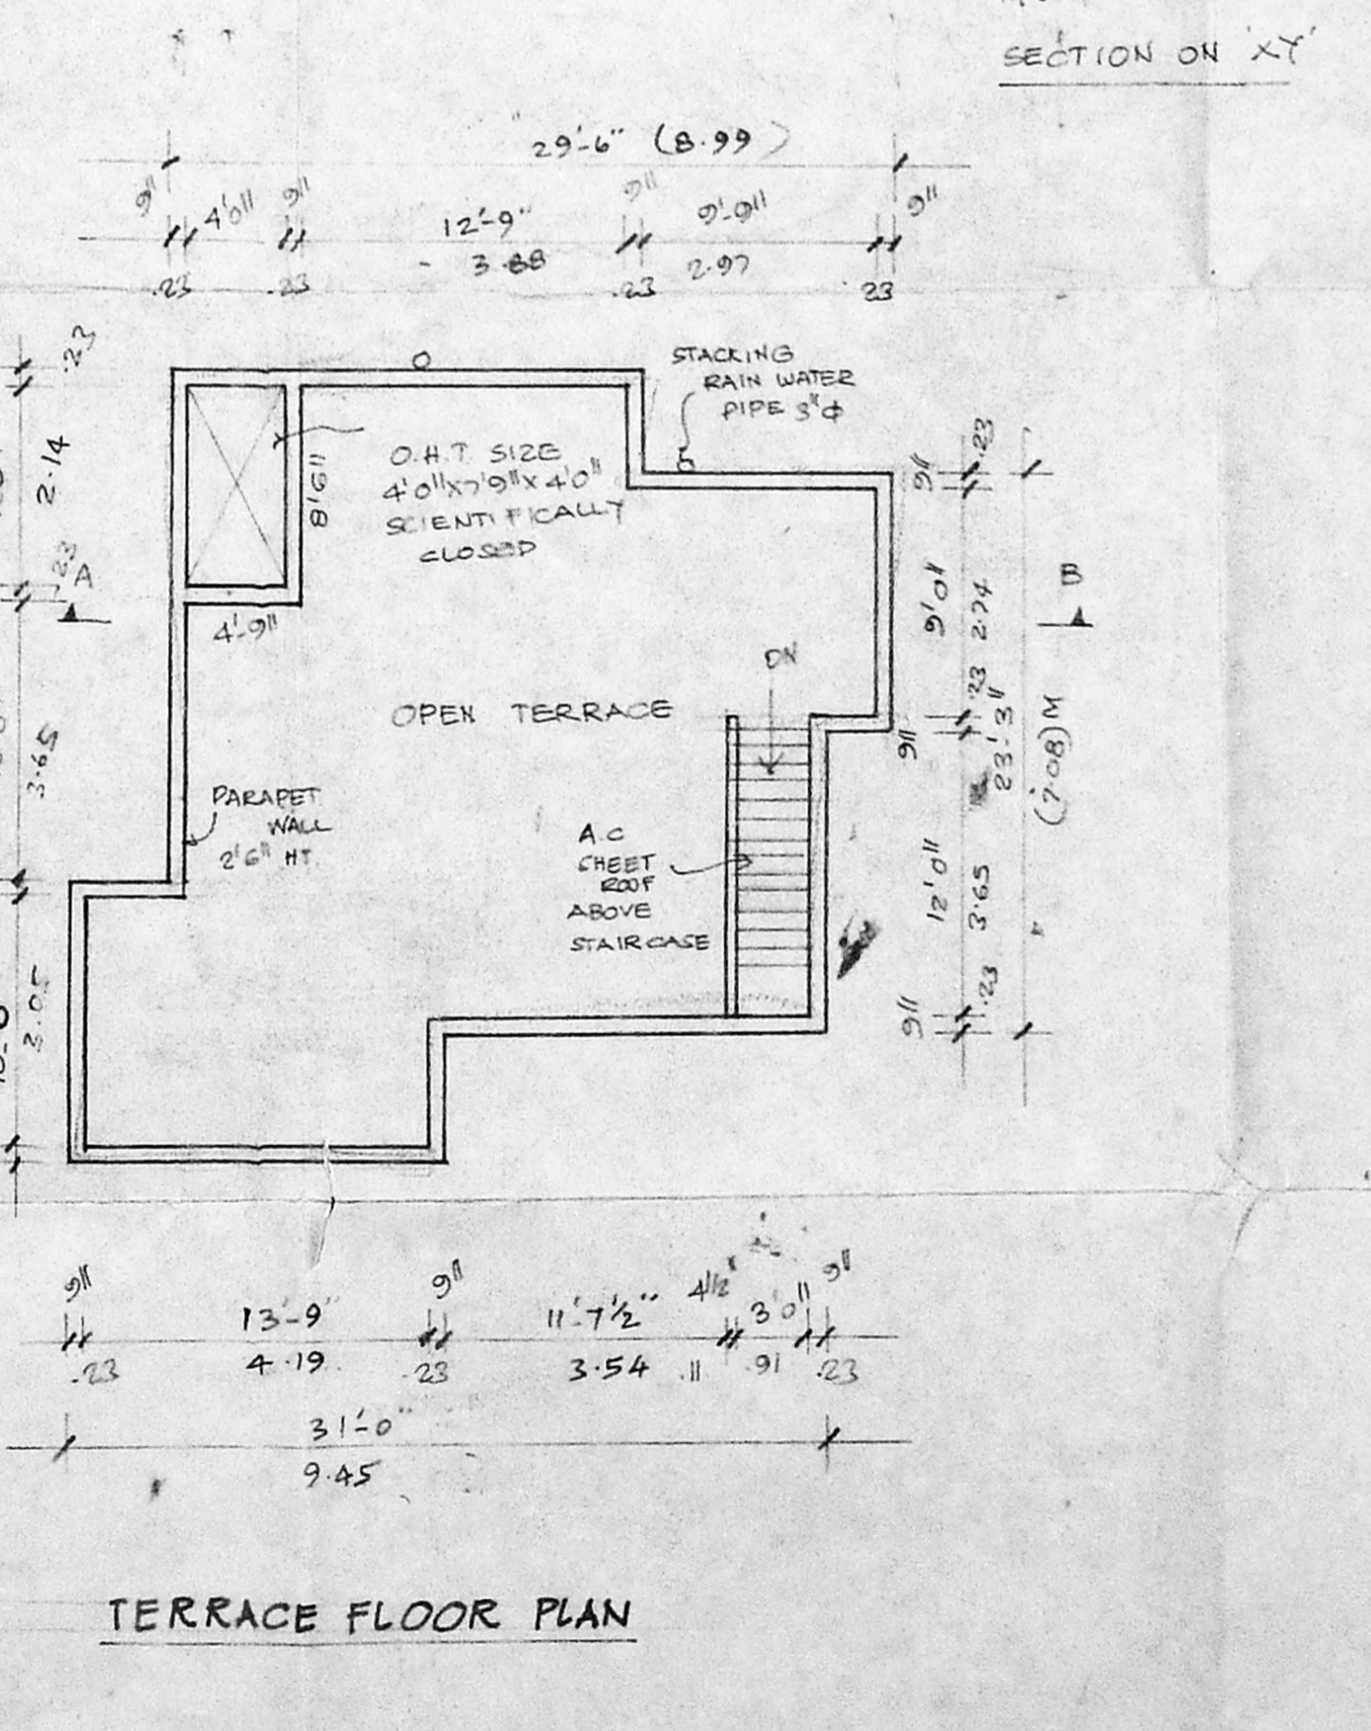 SECTION ON 'XY'
29'-6" (8.99)
9" 4'0" 9" 12'-9" 9" 9'-9" 9"
.23 .23 3.88 .23 2.97 .23
.23
2.14
.23
A
3.65
3.05
STACKING
RAIN WATER
PIPE 3"φ
O.H.T. SIZE
4'0"X7'9"X4'0"
SCIENTIFICALLY
CLOSED
8'6"
4'-9"
OPEN TERRACE
DN
PARAPET
WALL
2'6" HT.
A.C
SHEET
ROOF
ABOVE
STAIRCASE
9" .23
9'0" 2.74
B
9" .23
23'-3"
(7.08)M
12'0" 3.65
9" .23
9" 13'-9" 9" 11'-7½" 4½" 3'0" 9"
.23 4.19 .23 3.54 .11 .91 .23
31'-0"
9.45
TERRACE FLOOR PLAN